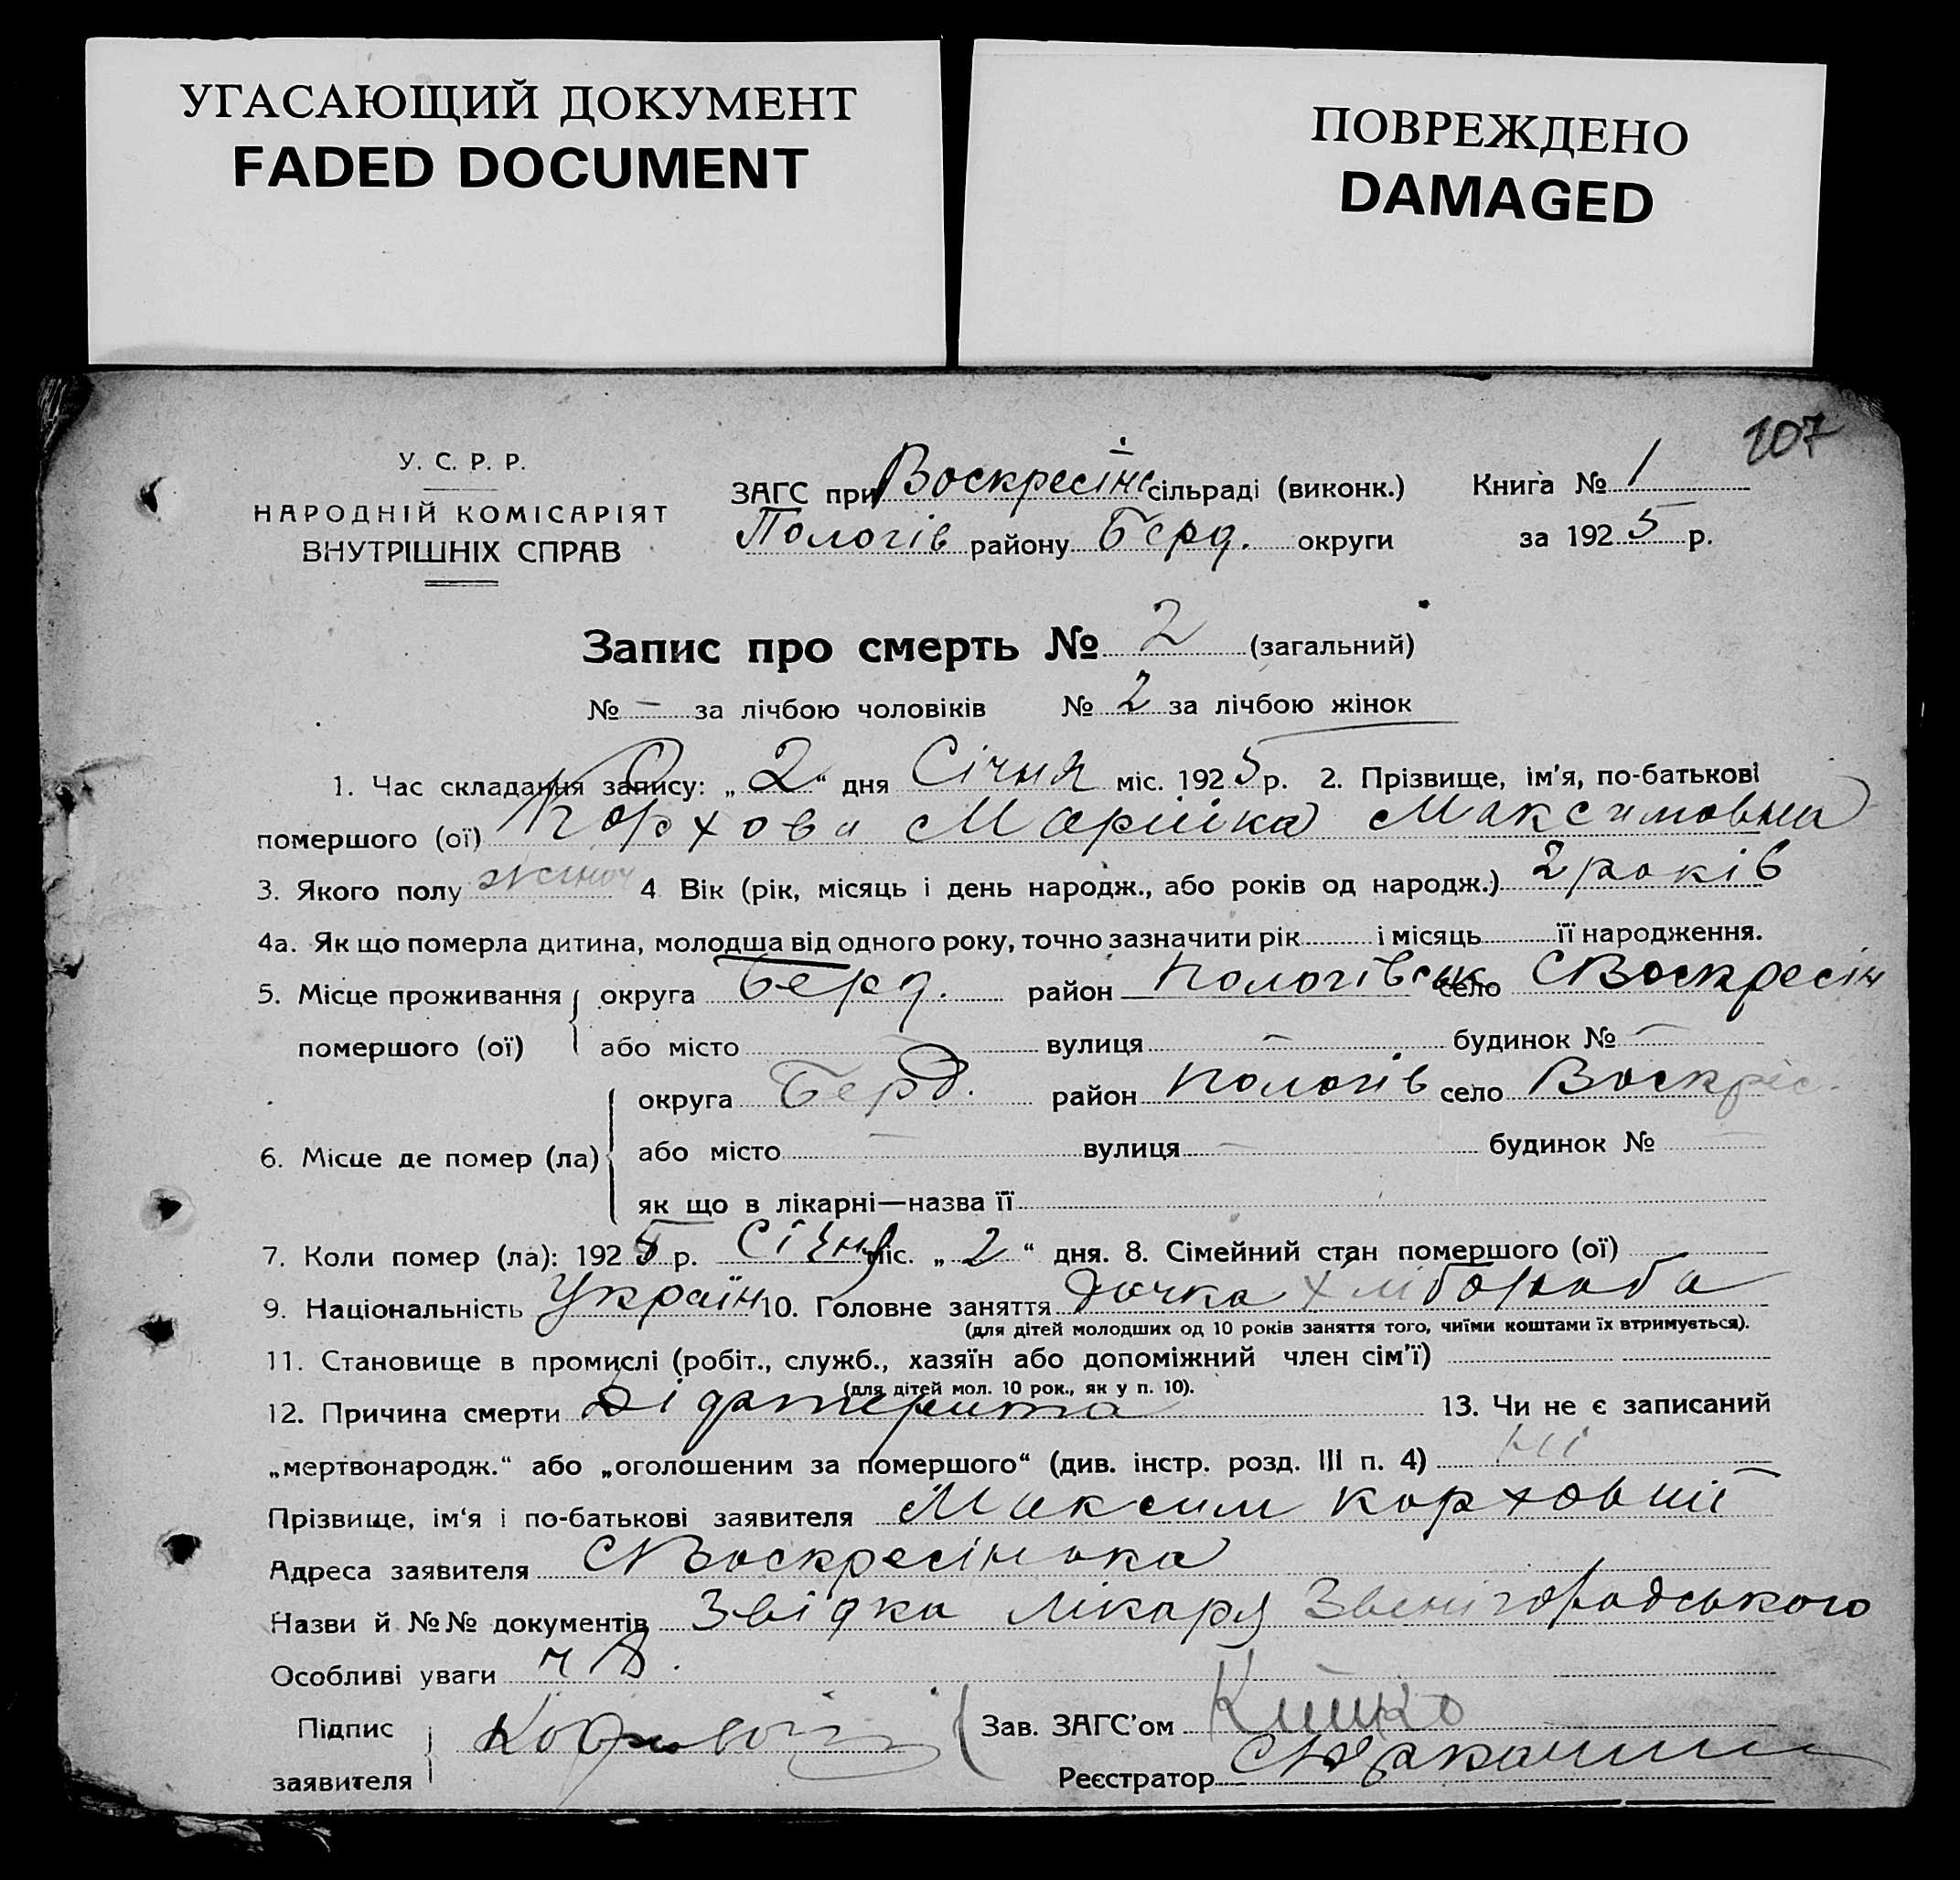 УГАСАЮЩИЙ ДОКУМЕНТ
FADED DOCUMENT
ПОВРЕЖДЕНО
DAMAGED
107
У. С. Р. Р.
НАРОДНІЙ КОМІСАРІЯТ
ВНУТРІШНІХ СПРАВ
ЗАГС при Воскресінс сільраді (виконк.) Книга № 1
Пологів району Берд. округи за 1925 р.
Запис про смерть № 2 (загальний)
№ — за лічбою чоловіків № 2 за лічбою жінок
1. Час складання запису: „2“ дня Січня міс. 1925 р. 2. Прізвище, ім'я, по-батькові
помершого (ої) Корхова Марійка Максимовна
3. Якого полу жіноч 4 Вік (рік, місяць і день народж., або років од народж.) 2 років
4а. Як що померла дитина, молодша від одного року, точно зазначити рік і місяць її народження.
5. Місце проживання округа Берд. район Пологівськ село Воскресін
помершого (ої) або місто — вулиця — будинок № —
округа Берд. район Пологів село Воскрес.
6. Місце де помер (ла) або місто — вулиця — будинок № —
як що в лікарні—назва її
7. Коли помер (ла): 1925 р. Січня міс. „2“ дня. 8. Сімейний стан помершого (ої)
9. Національність Україн 10. Головне заняття дочка хлібороба
(для дітей молодших од 10 років заняття того, чиїми коштами їх втримується).
11. Становище в промислі (робіт., служб., хазяїн або допоміжний член сім'ї)
(для дітей мол. 10 рок., як у п. 10).
12. Причина смерти 13. Чи не є записаний
„мертвонародж.“ або „оголошеним за помершого“ (див. інстр. розд. III п. 4) ні
Прізвище, ім'я і по-батькові заявителя Максим Корховий
Адреса заявителя Воскресінка
Назви й №№ документів Звідка лікаря Звенігородського
Особливі уваги
Підпис Зав. ЗАГС'ом
заявителя Реєстратор